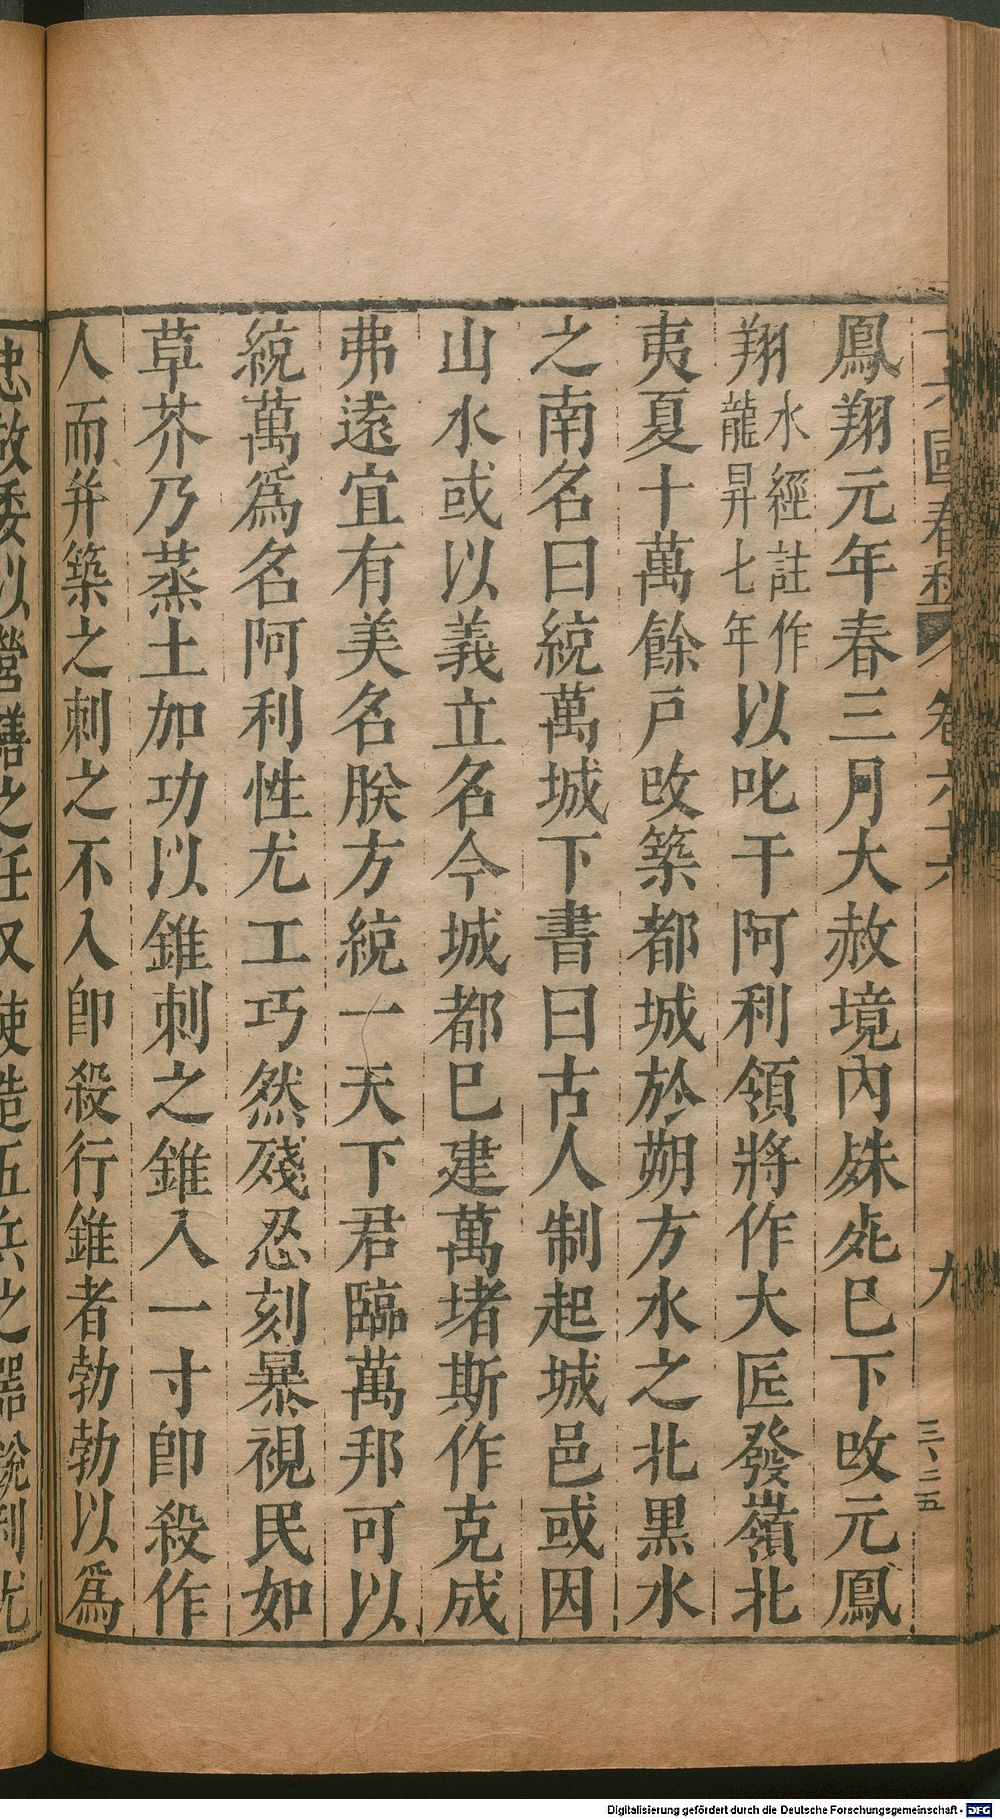 國春秋 卷六十六 九 三、二五
鳳翔元年春三月大赦境內殊死巳下改元鳳
翔水經註作龍昇七年以叱干阿利領將作大匠發嶺北
夷夏十萬餘戸改築都城於朔方水之北黒水
之南名曰統萬城下書曰古人制起城邑或因
山水或以義立名今城都巳建萬堵斯作克成
弗遠宜有美名朕方統一天下君臨萬邦可以
統萬爲名阿利性尤工巧然殘忍刻暴視民如
草芥乃蒸土加功以錐刺之錐入一寸卽殺作
人而并築之刺之不入卽殺行錐者勃勃以爲
忠故委以營繕之任又使造五兵之器銳利尤
Digitalisierung gefördert durch die Deutsche Forschungsgemeinschaft - DFG